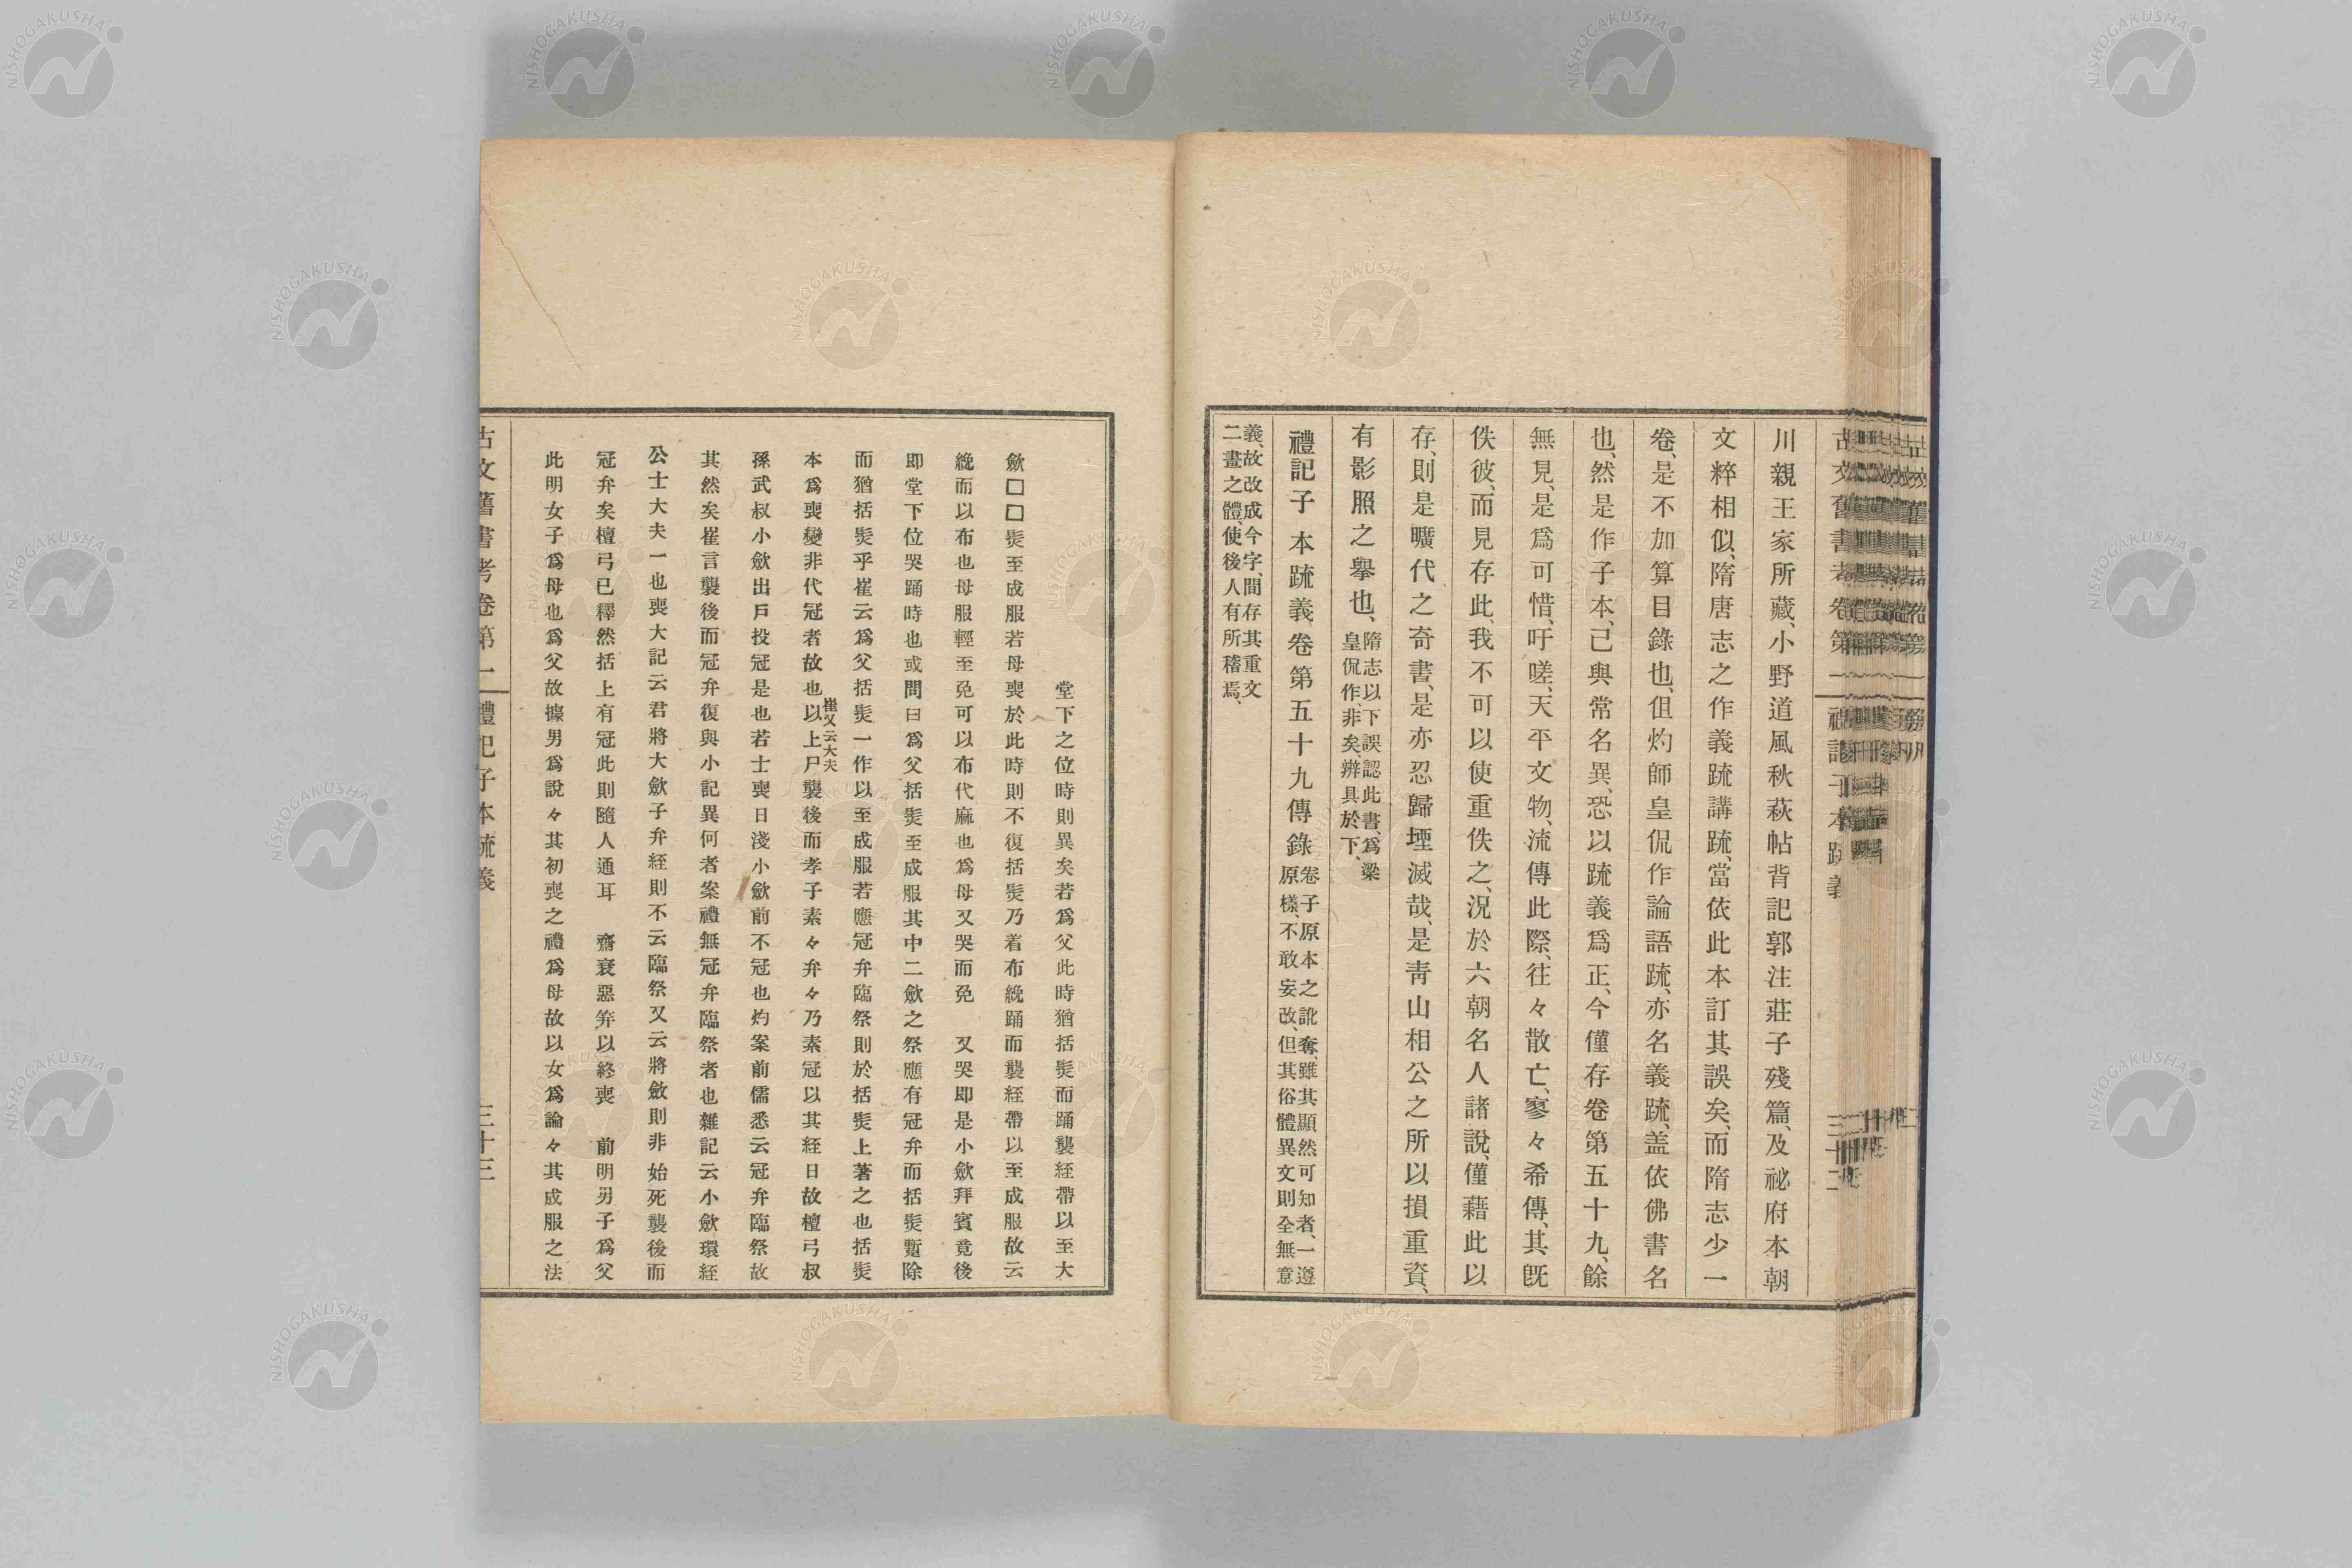 川親王家所藏、小野道風秋萩帖背記郭注莊子殘篇、及祕府本朝
文粹相似、隋唐志之作義疏講疏、當依此本訂其誤矣、而隋志少一
卷、是不加算目錄也、但灼師皇侃作論語疏、亦名義疏、盖依佛書名
也、然是作子本、已與常名異、恐以疏義爲正、今僅存卷第五十九、餘
無見、是爲可惜、吁嗟、天平文物、流傳此際、往々散亡、寥々希傳、其旣
佚彼、而見存此、我不可以使重佚之、況於六朝名人諸說、僅藉此以
存、則是曠代之奇書、是亦忍歸堙滅哉、是靑山相公之所以損重資、
有影照之擧也、隋志以下誤認此書、爲梁
皇侃作、非矣、辨具於下、
禮記子本疏義卷第五十九傳錄 卷子原本之訛奪、雖其顯然可知者、一遵
原樣、不敢妄改、但其俗體異文則全無意
義、故改成今字、間存其重文
二畫之體、使後人有所稽焉、
堂下之位時則異矣若爲父此時猶括髮而踊襲絰帶以至大
斂□□髮至成服若母喪於此時則不復括髮乃着布絻踊而襲絰帶以至成服故云
絻而以布也母服輕至免可以布代麻也爲母又哭而免 又哭即是小斂拜賓竟後
即堂下位哭踊時也或問曰爲父括髮至成服其中二斂之祭應有冠弁而括髮蹔除
而猶括髮乎崔云爲父括髮一作以至成服若應冠弁臨祭則於括髮上著之也括髮
本爲喪變非代冠者故也崔又云大夫以上尸襲後而孝子素々弁々乃素冠以其絰日故檀弓叔
孫武叔小斂出戶投冠是也若士喪日淺小斂前不冠也灼案前儒悉云冠弁臨祭故
其然矣崔言襲後而冠弁復與小記異何者案禮無冠弁臨祭者也雜記云小斂環絰
公士大夫一也喪大記云君將大斂子弁絰則不云臨祭又云將斂則非始死襲後而
冠弁矣檀弓已釋然括上有冠此則隨人通耳 齋衰惡笄以終喪 前明男子爲父
此明女子爲母也爲父故據男爲說々其初喪之禮爲母故以女爲論々其成服之法
古文舊書考卷第一 禮記子本疏義 三十三